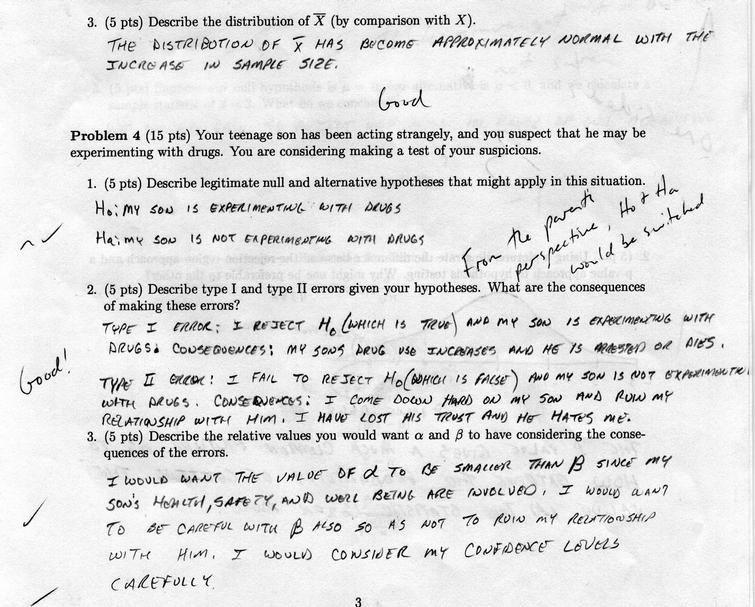 3. (5 pts) Describe the distribution of X̅ (by comparison with X).
THE DISTRIBUTION OF X̅ HAS BECOME APPROXIMATELY NORMAL WITH THE
INCREASE IN SAMPLE SIZE.
Good
Problem 4 (15 pts) Your teenage son has been acting strangely, and you suspect that he may be
experimenting with drugs. You are considering making a test of your suspicions.
1. (5 pts) Describe legitimate null and alternative hypotheses that might apply in this situation.
Ho: MY SON IS EXPERIMENTING WITH DRUGS
Ha: MY SON IS NOT EXPERIMENTING WITH DRUGS
From the parents
perspective, Ho + Ha
would be switched
2. (5 pts) Describe type I and type II errors given your hypotheses. What are the consequences
of making these errors?
TYPE I ERROR: I REJECT Ho (WHICH IS TRUE) AND MY SON IS EXPERIMENTING WITH
DRUGS. CONSEQUENCES: MY SONS DRUG USE INCREASES AND HE IS ARRESTED OR DIES.
Good!
TYPE II ERROR: I FAIL TO REJECT Ho (WHICH IS FALSE) AND MY SON IS NOT EXPERIMENTIN
WITH DRUGS. CONSEQUENCES: I COME DOWN HARD ON MY SON AND RUIN MY
RELATIONSHIP WITH HIM. I HAVE LOST HIS TRUST AND HE HATES ME.
3. (5 pts) Describe the relative values you would want α and β to have considering the conse-
quences of the errors.
I WOULD WANT THE VALUE OF α TO BE SMALLER THAN β SINCE MY
SON'S HEALTH, SAFETY, AND WELL BEING ARE INVOLVED. I WOULD WANT
TO BE CAREFUL WITH β ALSO SO AS NOT TO RUIN MY RELATIONSHIP
WITH HIM. I WOULD CONSIDER MY CONFIDENCE LEVELS
CAREFULLY.
3